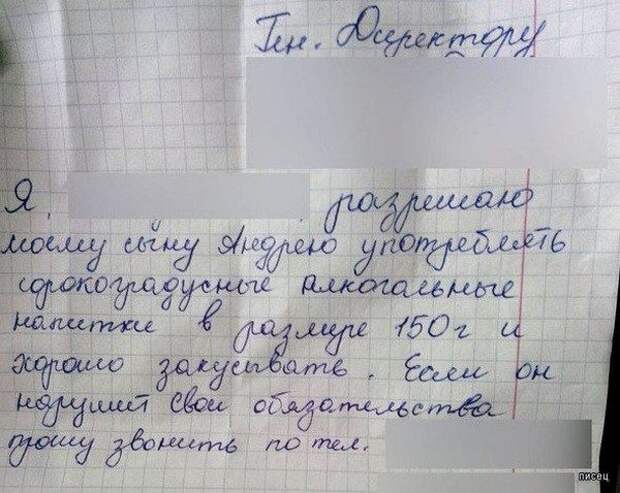 Ген. Директору
Я, разрешаю
моему сыну Андрею употреблять
сорокоградусные алкогольные
напитки в размере 150 г и
хорошо закусывать. Если он
нарушит свои обязательства
прошу звонить по тел.
писец